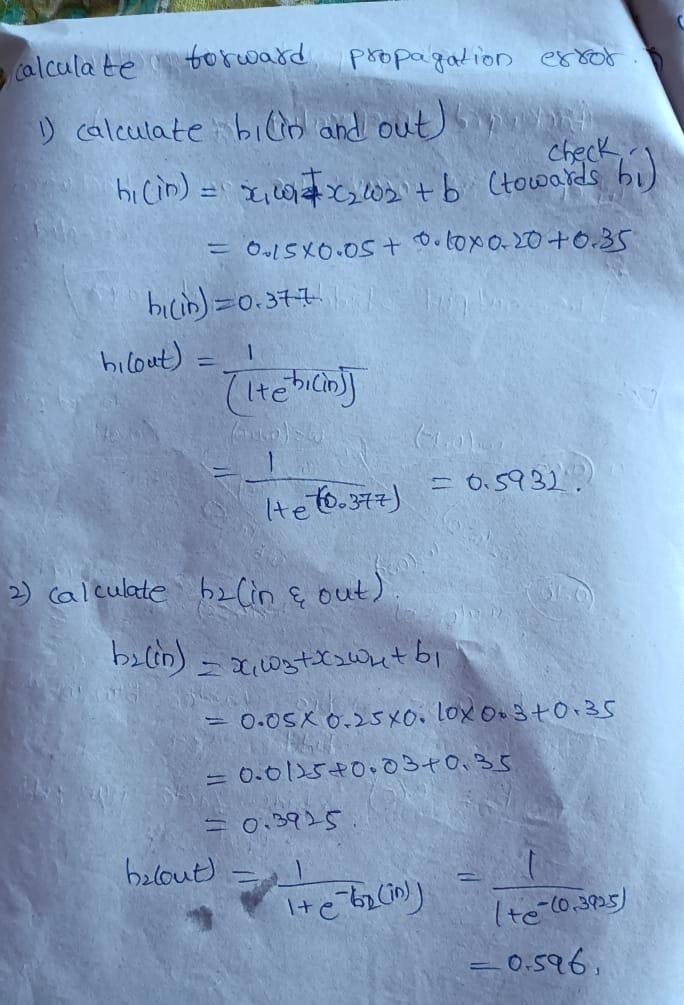 calculate forward propagation error.
1) calculate h1(in and out)
check
h1(in) = x1w1+x2w2 + b (towards h1)
= 0.15×0.05 + 0.10×0.20+0.35
h1(in)=0.377
h1(out) = 1/(1+e^-h1(in))
= 1/1+e^-(0.377) = 0.5932.
2) calculate h2(in & out).
h2(in) = x1w3+x2w4+b1
= 0.05×0.25×0.10×0.3+0.35
= 0.0125+0.03+0.35
= 0.3925.
h2(out) = 1/1+e^-h2(in)) = 1/1+e^-(0.3925)
= 0.596.